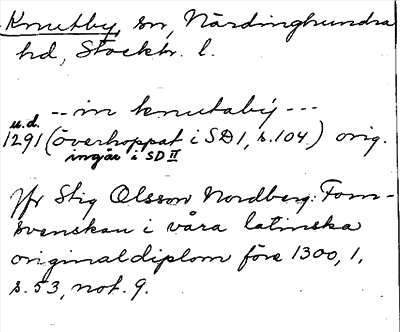 Knutby, sn, Närdinghundra
hd, Stockh. l.
-- in knutabij ---
u.d.
1291 (överhoppat i SD 1, s. 104.) orig.
ingår i SD II
Jfr Stig Olsson Nordberg: Forn-
svenskan i våra latinska
originaldiplom före 1300, 1,
s. 53, not. 9.